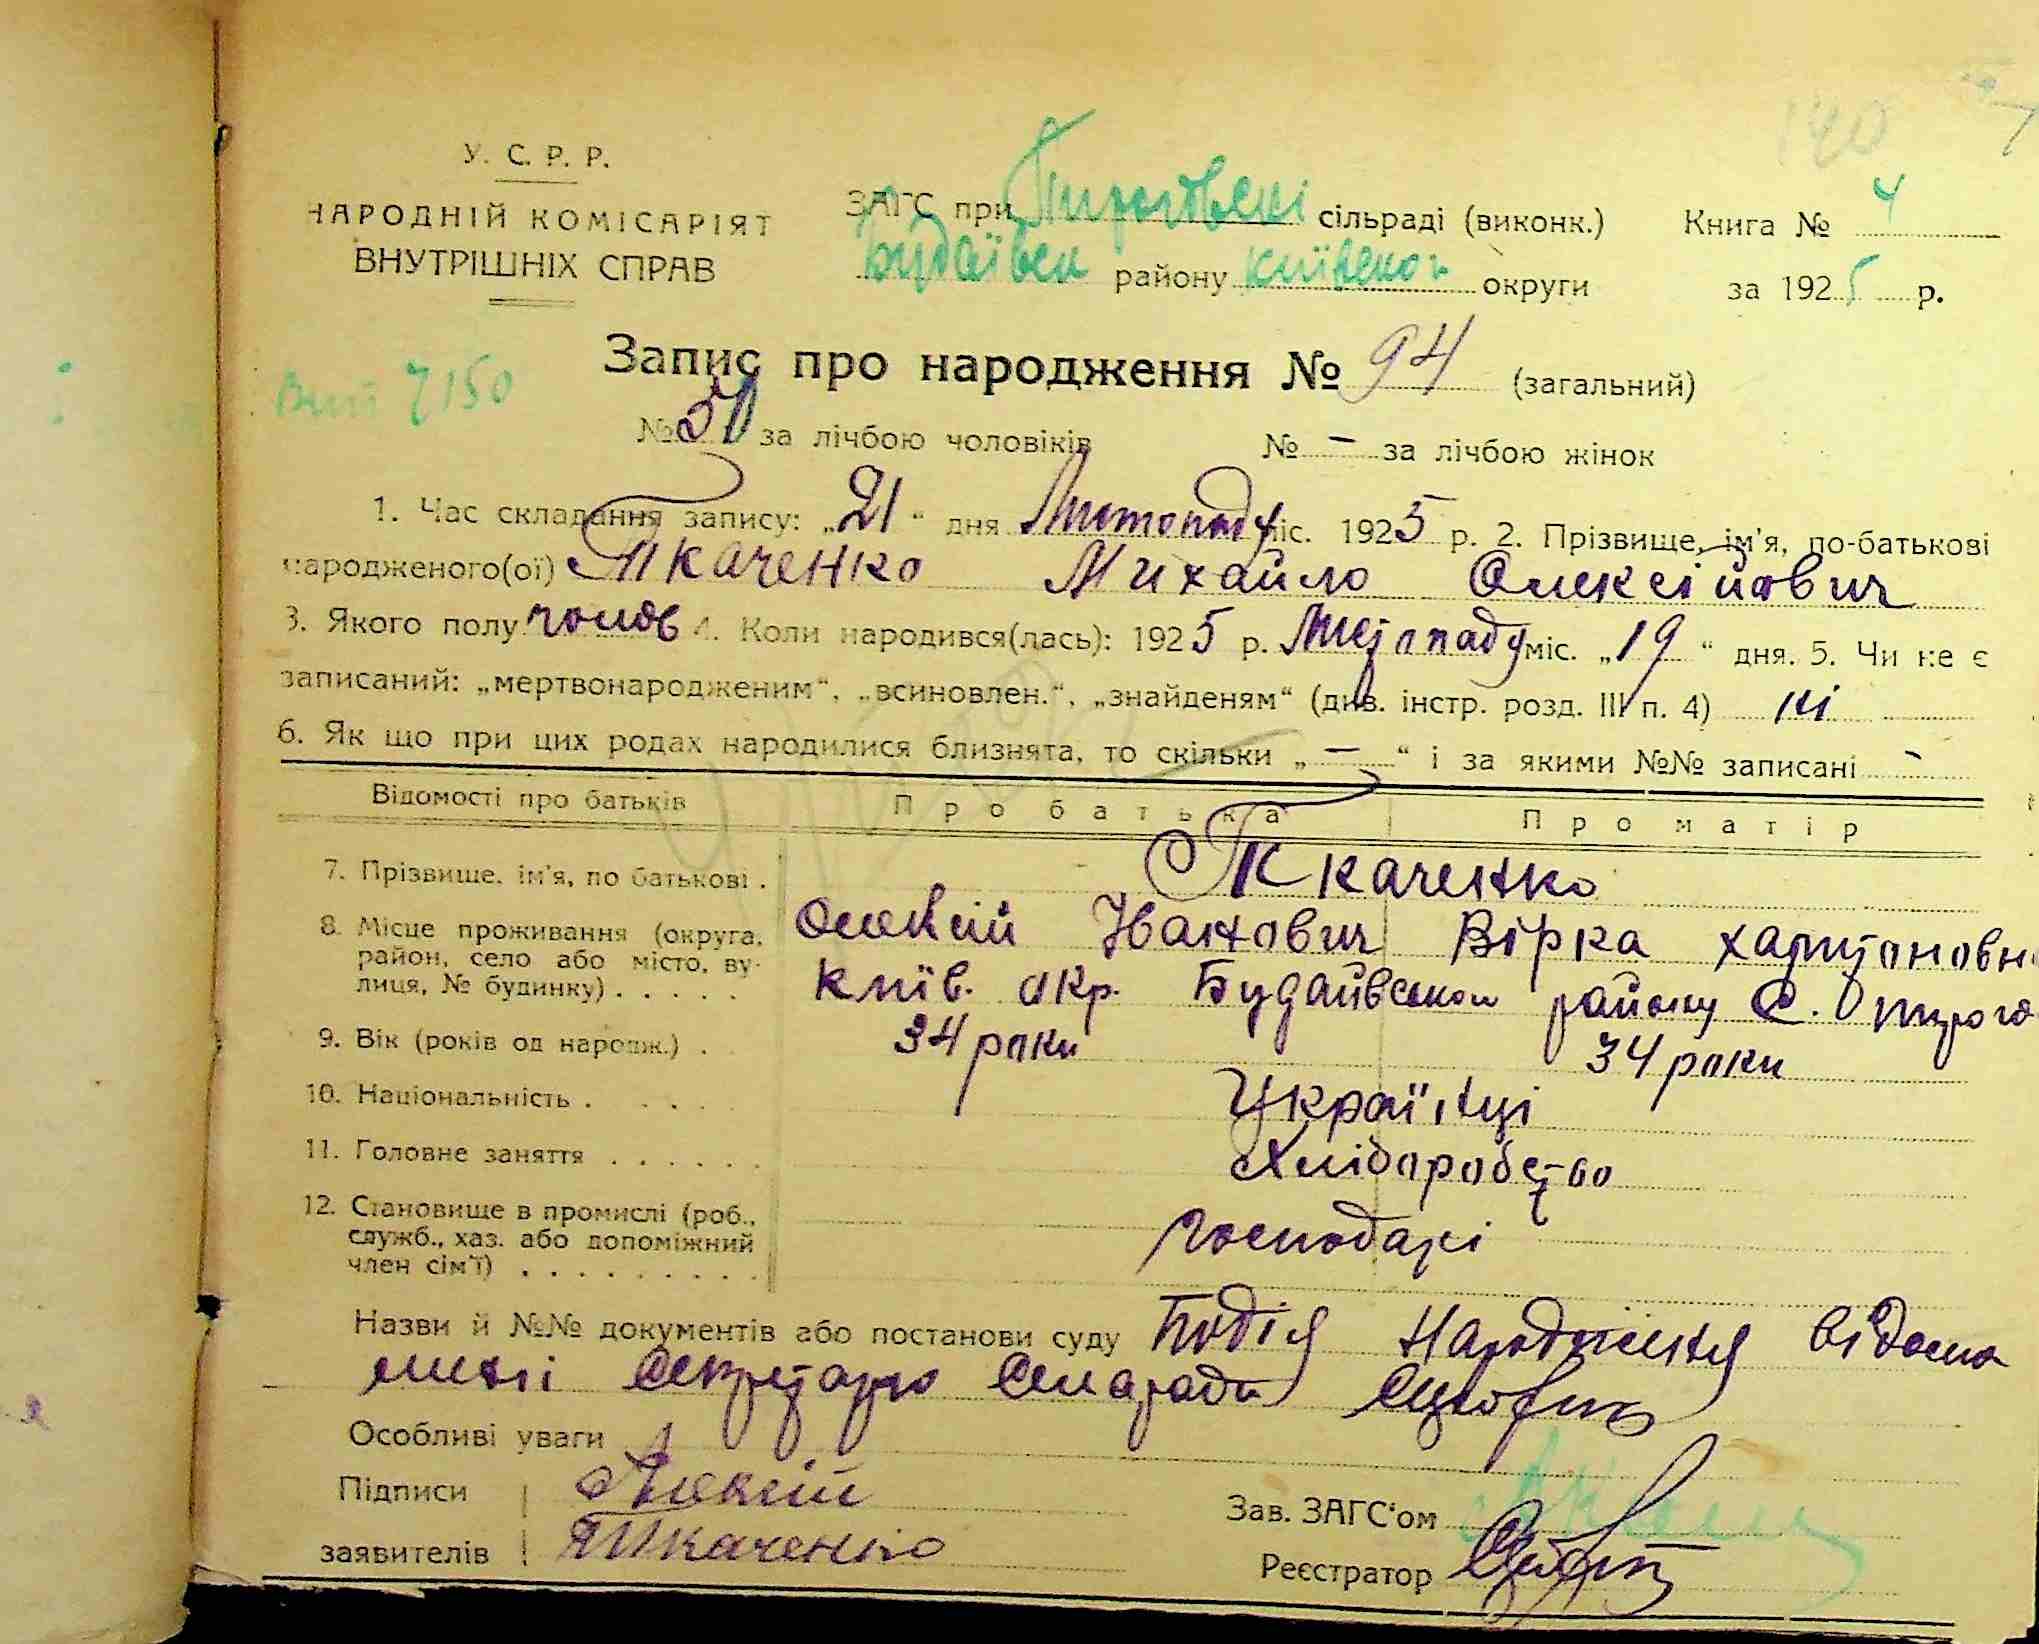 У. С. Р. Р.
НАРОДНІЙ КОМІСАРІЯТ
ВНУТРІШНІХ СПРАВ
140
ЗАГС при Пироговскі сільраді (виконк.) Книга № 4
Будаївск району Київскої округи за 1925 р.
Запис про народження № 94 (загальний)
7150
№ 50 за лічбою чоловіків № – за лічбою жінок
1. Час складання запису: „21“ дня Листопаду міс. 1925 р. 2. Прізвище, ім'я, по-батькові
народженого(ої) Ткаченко Михайло Олексійович
3. Якого полу чолов 4. Коли народився(лась): 1925 р. Листопаду міс. „19“ дня. 5. Чи не є
записаний: „мертвонародженим“, „всиновлен.“, „знайденям“ (див. інстр. розд. III п. 4) ні
6. Як що при цих родах народилися близнята, то скільки „–“ і за якими №№ записані -
Відомості про батьків Про батька Про матір
7. Прізвище, ім'я, по батькові . Ткаченко
8. Місце проживання (округа, район, село або місто, вулиця, № будинку) . . . . .
Олексій Іванович Вірка Харитоновн
Київ. окр. Будаївської району С. Пирого
9. Вік (років од народж.) . 34 роки 34 роки
10. Національність . . . . Українці
11. Головне заняття . . . . . . Хліборобство
12. Становище в промислі (роб., служб., хаз. або допоміжний член сім'ї) . . . . . . . . . господарі
Назви й №№ документів або постанови суду Подія народження відома
мені Секретарю Сельради
Особливі уваги
Підписи Алексій
заявителів Ткаченко
Зав. ЗАГС'ом
Реєстратор